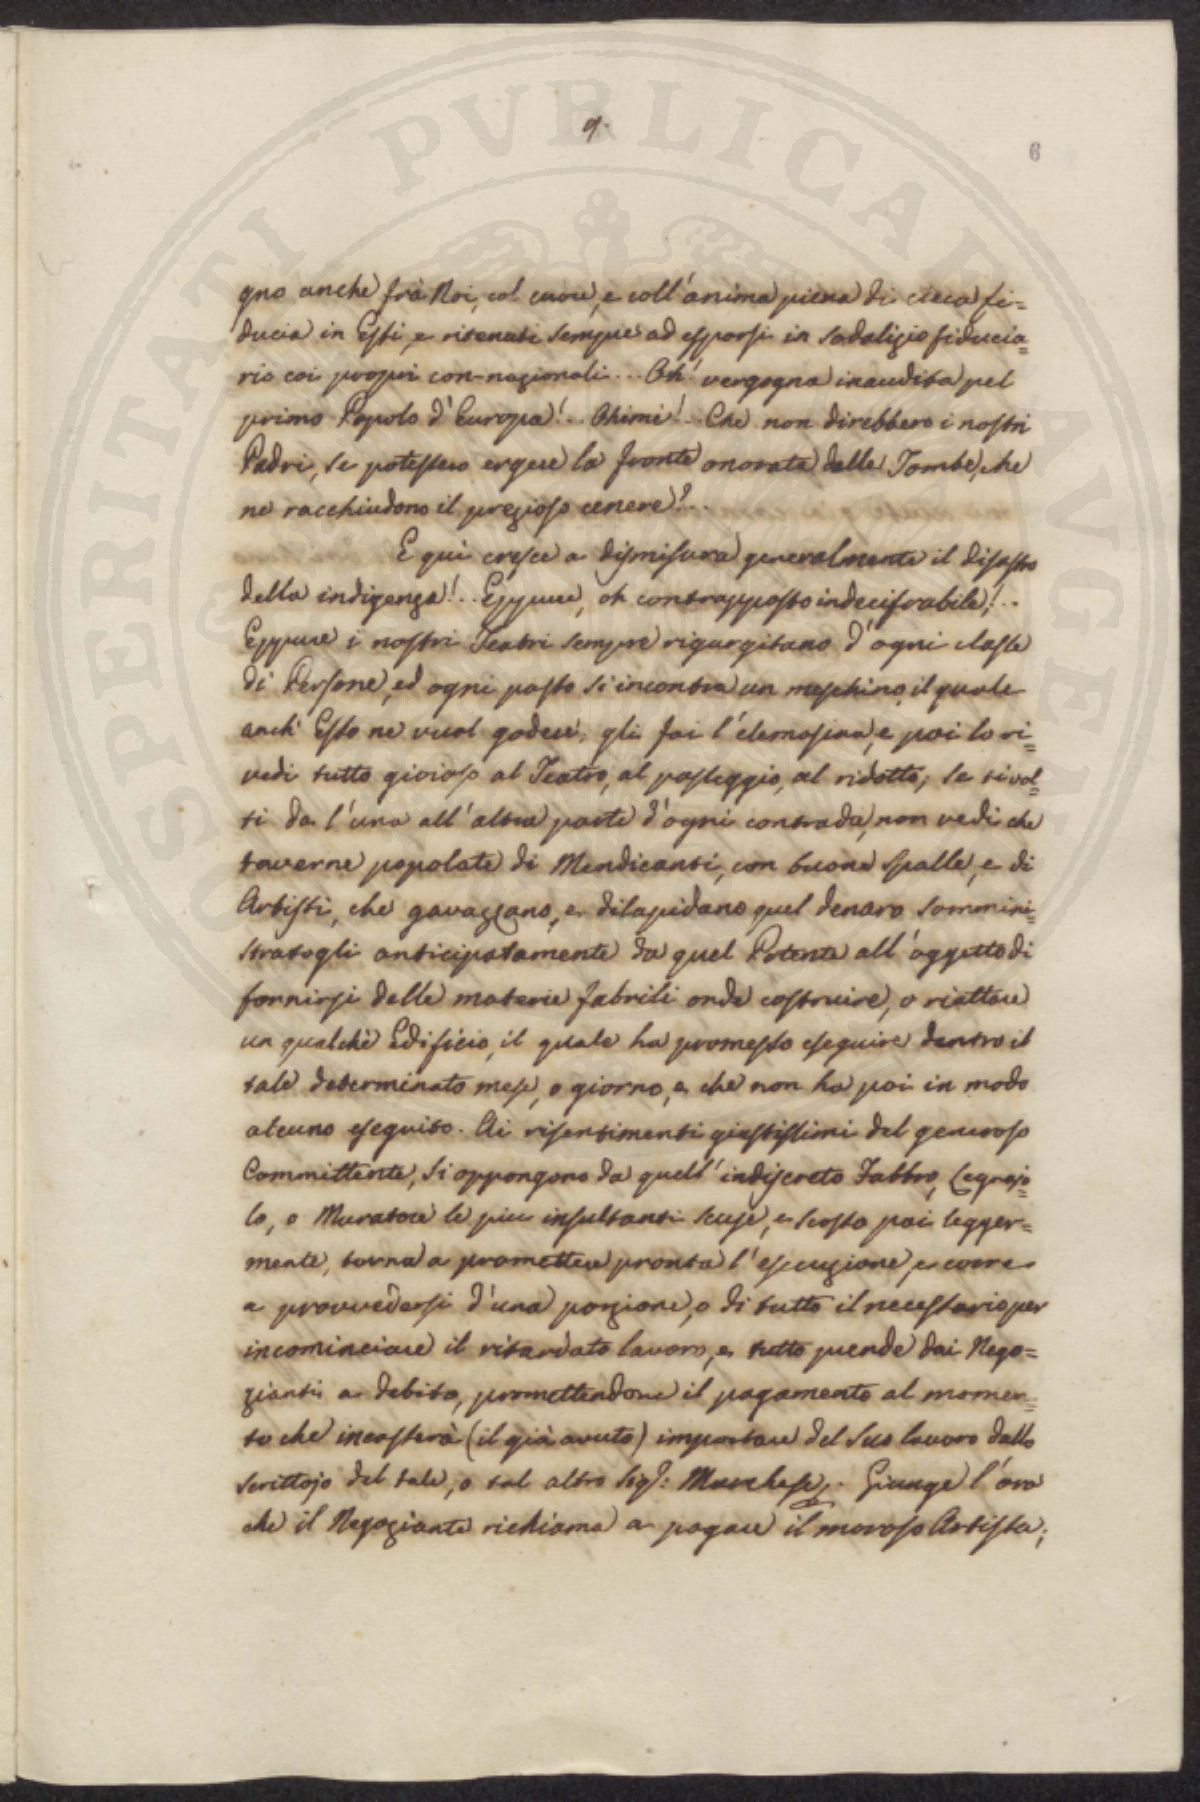 9.
6
gno anche frà Noi, col cuore, e coll'anima piena di cieca fi=
ducia in Essi, e ritenuti sempre ad esporsi in sodalizio fiducia=
rio coi proprj con-nazionali... Oh! vergogna inaudita pel
primo Popolo d'Europa!.. Ohimè!.. Che non direbbero i nostri
Padri, se potessero ergere la fronte onorata dalle Tombe, che
ne racchiudono il prezioso cenere?..
E qui cresce a dismisura generalmente il disastro
della indigenza!.. Eppure, oh contrapposto indecifrabile!..
Eppure i nostri Teatri sempre rigurgitano d'ogni classe
di Persone, ed ogni passo s'incontra un meschino, il quale
anch'Esso ne vuol godere; gli fai l'elemosina, e poi lo ri=
vedi tutto gioioso al Teatro, al passeggio, al ridotto; se ti vol=
ti da l'una all'altra parte d'ogni contrada, non vedi che
taverne popolate di Mendicanti, con buone spalle, e di
Artisti, che gavazzano, e dilapidano quel denaro sommini=
stratogli anticipatamente da quel Potente all'oggetto di
fornirsi delle materie fabrili onde costruire, o riattare
un qualchè Edificio, il quale ha promesso eseguire dentro il
tale determinato mese, o giorno, e che non ha poi in modo
alcuno eseguito. Ai risentimenti giustissimi del generoso
Committente, si oppongono da quell'indiscreto Fabbro, Legnajo=
lo, o Muratore le più insultanti scuse, e scosso poi legger=
mente, torna a promettere pronta l'esecuzione, e corre
a provvedersi d'una porzione, o di tutto il necessario per
incominciare il ritardato lavoro, e tutto prende dai Nego=
zianti a debito, promettendone il pagamento al momen=
to che incasserà (il già avuto) importare del suo lavoro dallo
scrittojo del tale, o tal altro Sigr: Marchese. Giunge l'ora
che il Negoziante richiama a pagare il moroso Artista;
SPERITATI PUBLICAE AUGEN